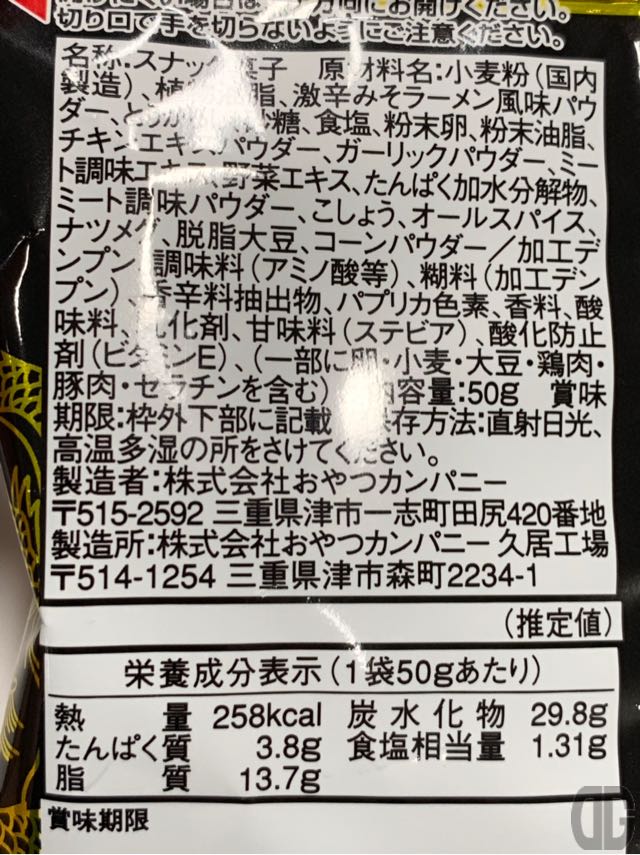 切り口で手を切らないようにご注意ください。
名称:スナック菓子 原材料名:小麦粉(国内
製造)、植 脂、激辛みそラーメン風味パウ
ダー、とうがらし、砂糖、食塩、粉末卵、粉末油脂、
チキンエキスパウダー、ガーリックパウダー、ミー
ト調味エキス、野菜エキス、たんぱく加水分解物、
ミート調味パウダー、こしょう、オールスパイス、
ナツメグ、脱脂大豆、コーンパウダー/加工デ
ンプン、調味料(アミノ酸等)、糊料(加工デン
プン)、香辛料抽出物、パプリカ色素、香料、酸
味料、乳化剤、甘味料(ステビア)、酸化防止
剤(ビタミンE)、(一部に卵・小麦・大豆・鶏肉・
豚肉・ゼラチンを含む) 内容量:50g 賞味
期限:枠外下部に記載 保存方法:直射日光、
高温多湿の所をさけてください。
製造者:株式会社おやつカンパニー
〒515-2592 三重県津市一志町田尻420番地
製造所:株式会社おやつカンパニー 久居工場
〒514-1254 三重県津市森町2234-1
(推定値)
栄養成分表示(1袋50gあたり)
熱量 258kcal 炭水化物 29.8g
たんぱく質 3.8g 食塩相当量 1.31g
脂質 13.7g
賞味期限
DG